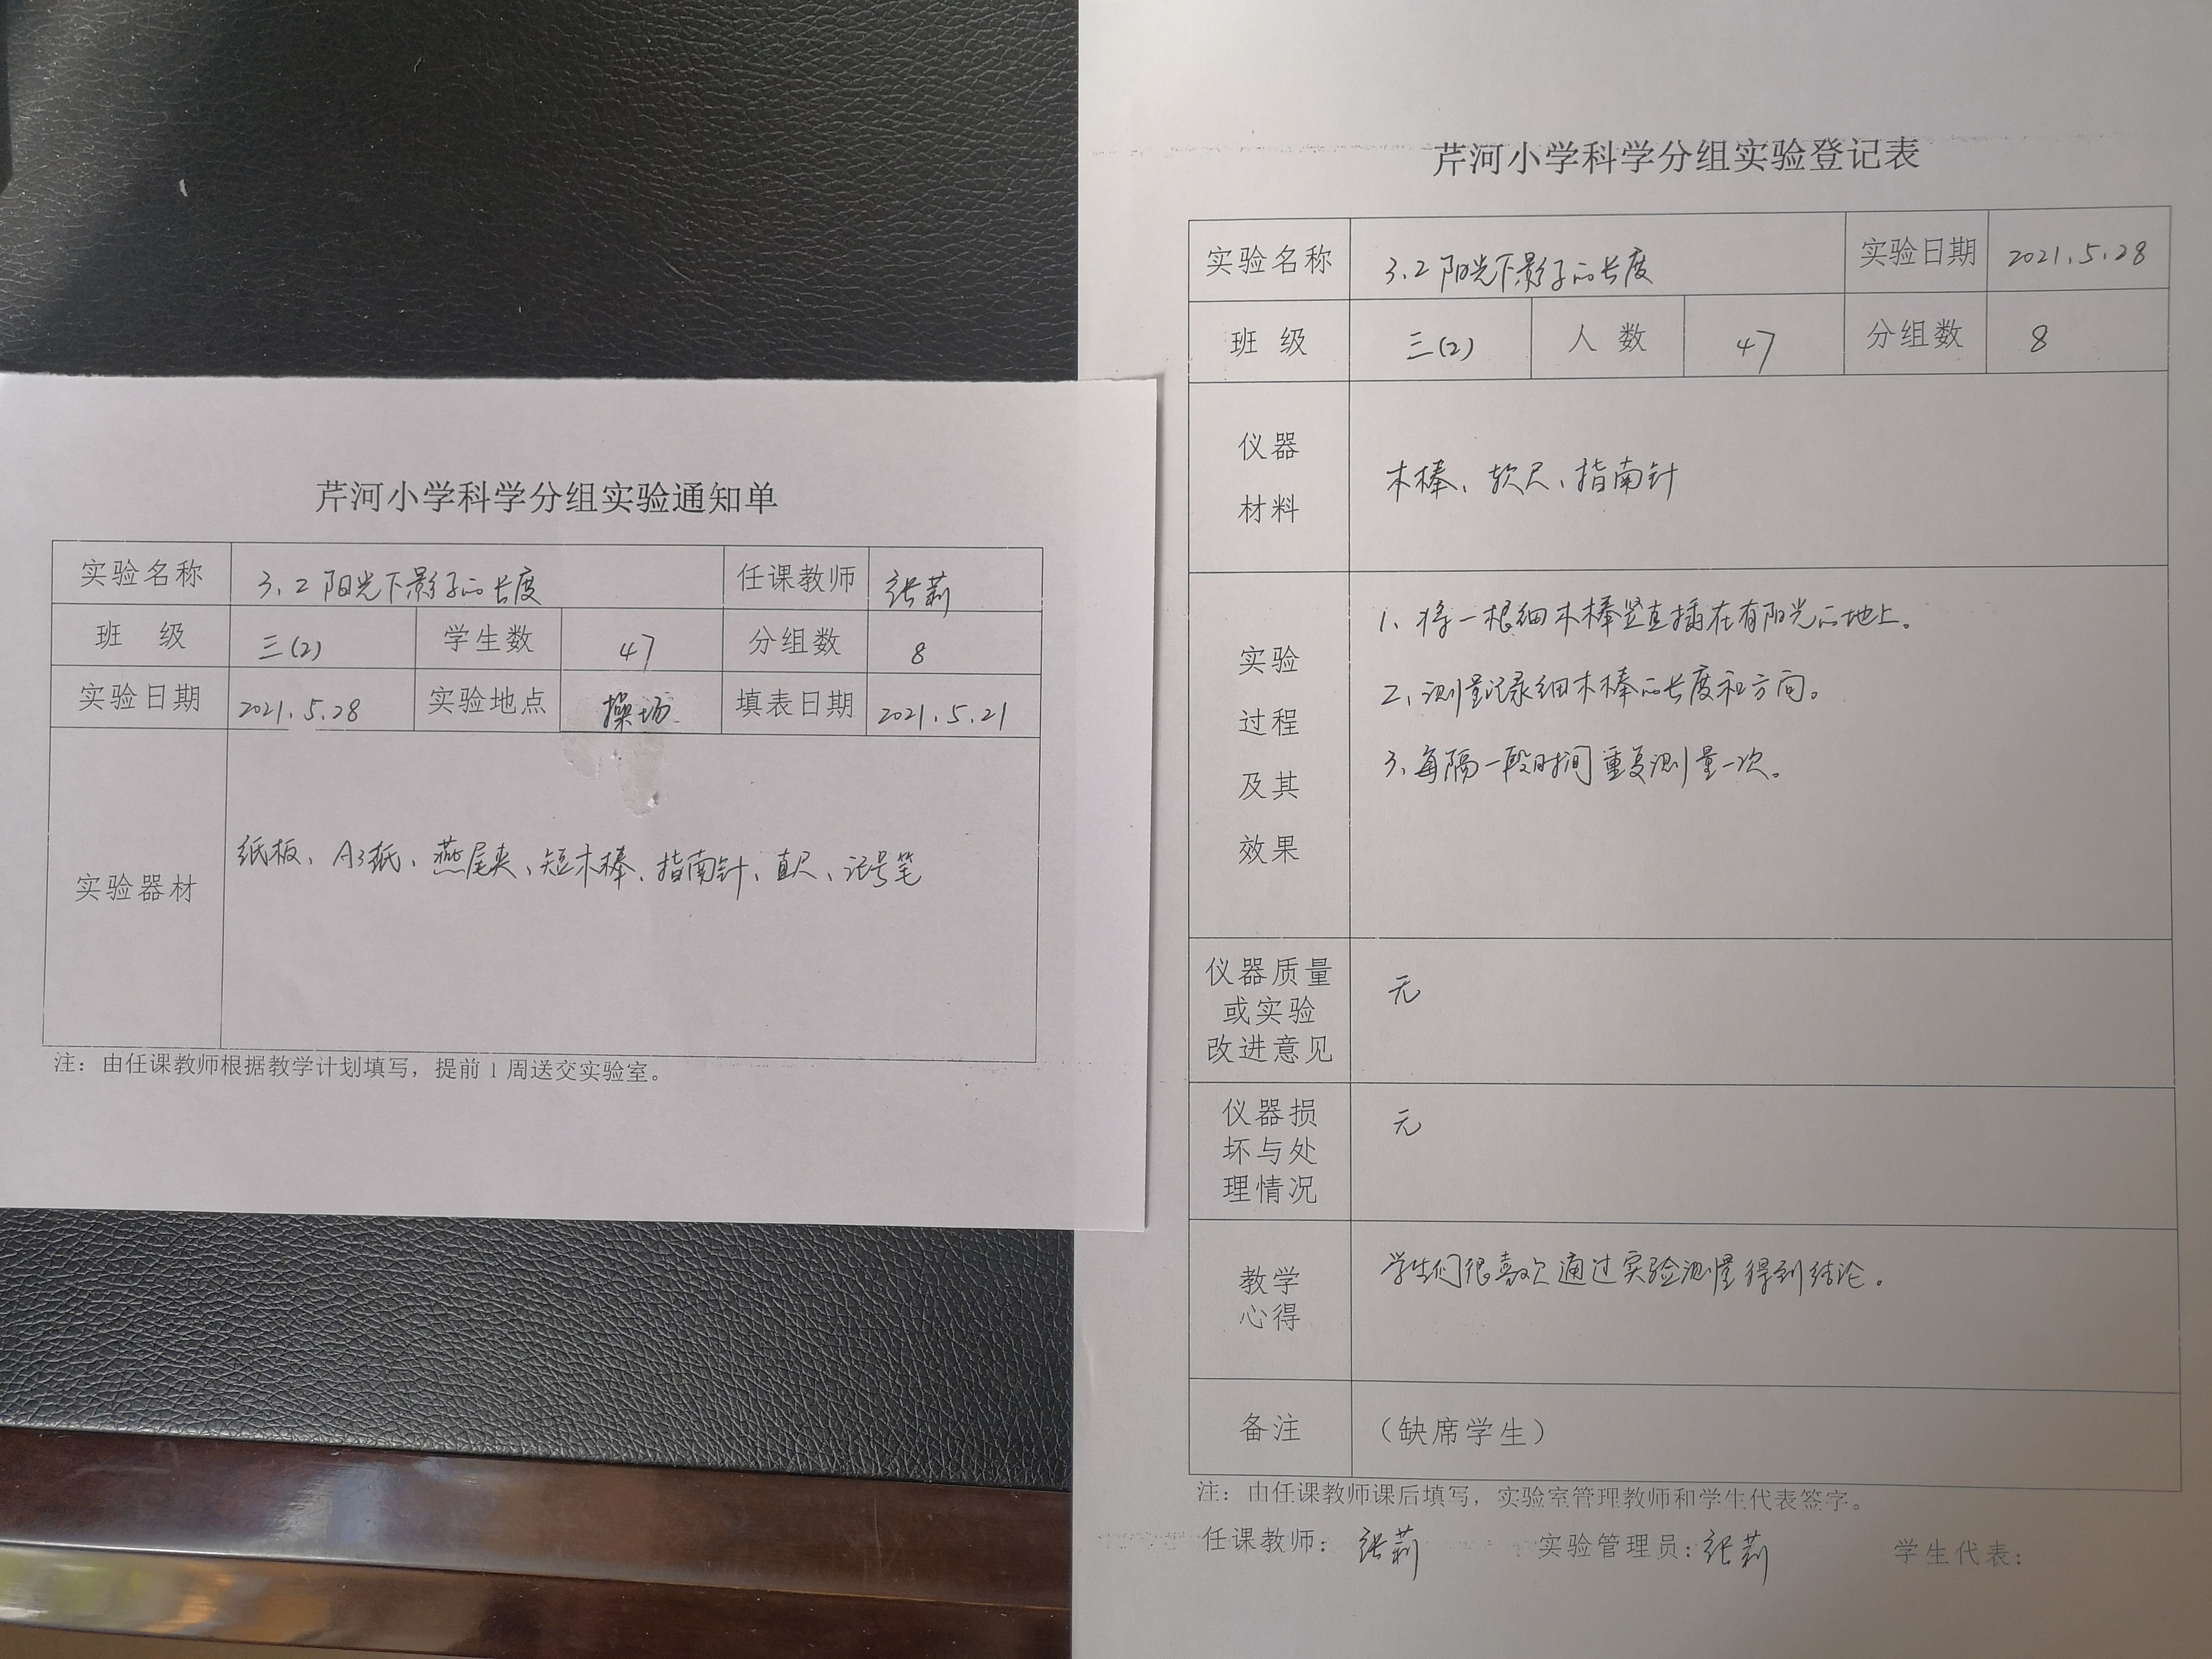 芹河小学科学分组实验通知单
实验名称 3.2 阳光下影子的长度 任课教师 张莉
班 级 三(2) 学生数 47 分组数 8
实验日期 2021.5.28 实验地点 操场 填表日期 2021.5.21
实验器材 纸板、A3纸、燕尾夹、短木棒、指南针、直尺、记号笔
注：由任课教师根据教学计划填写，提前1周送交实验室。
芹河小学科学分组实验登记表
实验名称 3.2 阳光下影子的长度 实验日期 2021.5.28
班 级 三(2) 人 数 47 分组数 8
仪器
材料
木棒、软尺、指南针
实验
过程
及其
效果
1、将一根细木棒竖直插在有阳光的地上。
2、测量记录细木棒的长度和方向。
3、每隔一段时间重复测量一次。
仪器质量
或实验
改进意见
无
仪器损
坏与处
理情况
无
教学
心得
学生们很喜欢通过实验测量得到结论。
备注 （缺席学生）
注：由任课教师课后填写，实验室管理教师和学生代表签字。
任课教师：张莉 实验管理员：张莉 学生代表：